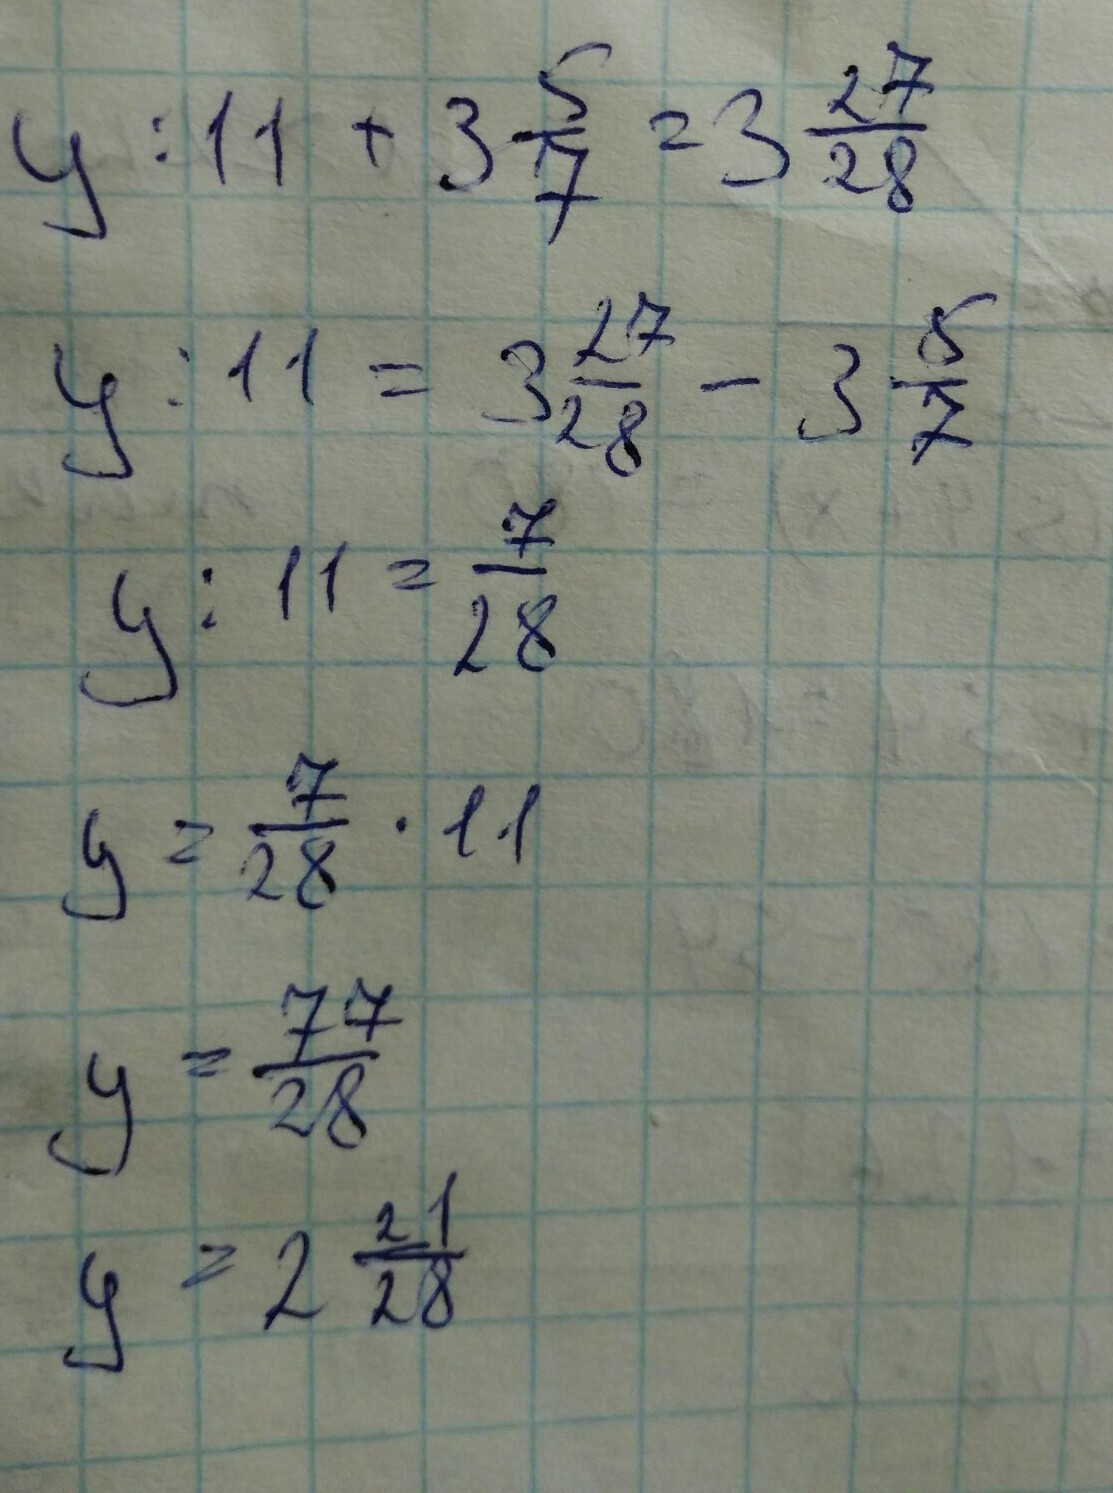 y : 11 + 3 5/7 = 3 27/28
y : 11 = 3 27/28 - 3 5/7
y : 11 = 7/28
y = 7/28 · 11
y = 77/28
y = 2 21/28